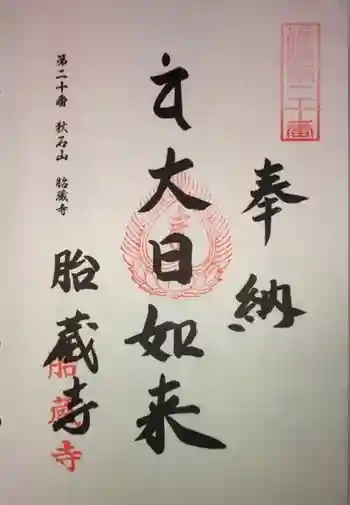 奉納
大日如来
胎蔵寺
第二十番 秋石山 胎蔵寺
胎蔵寺